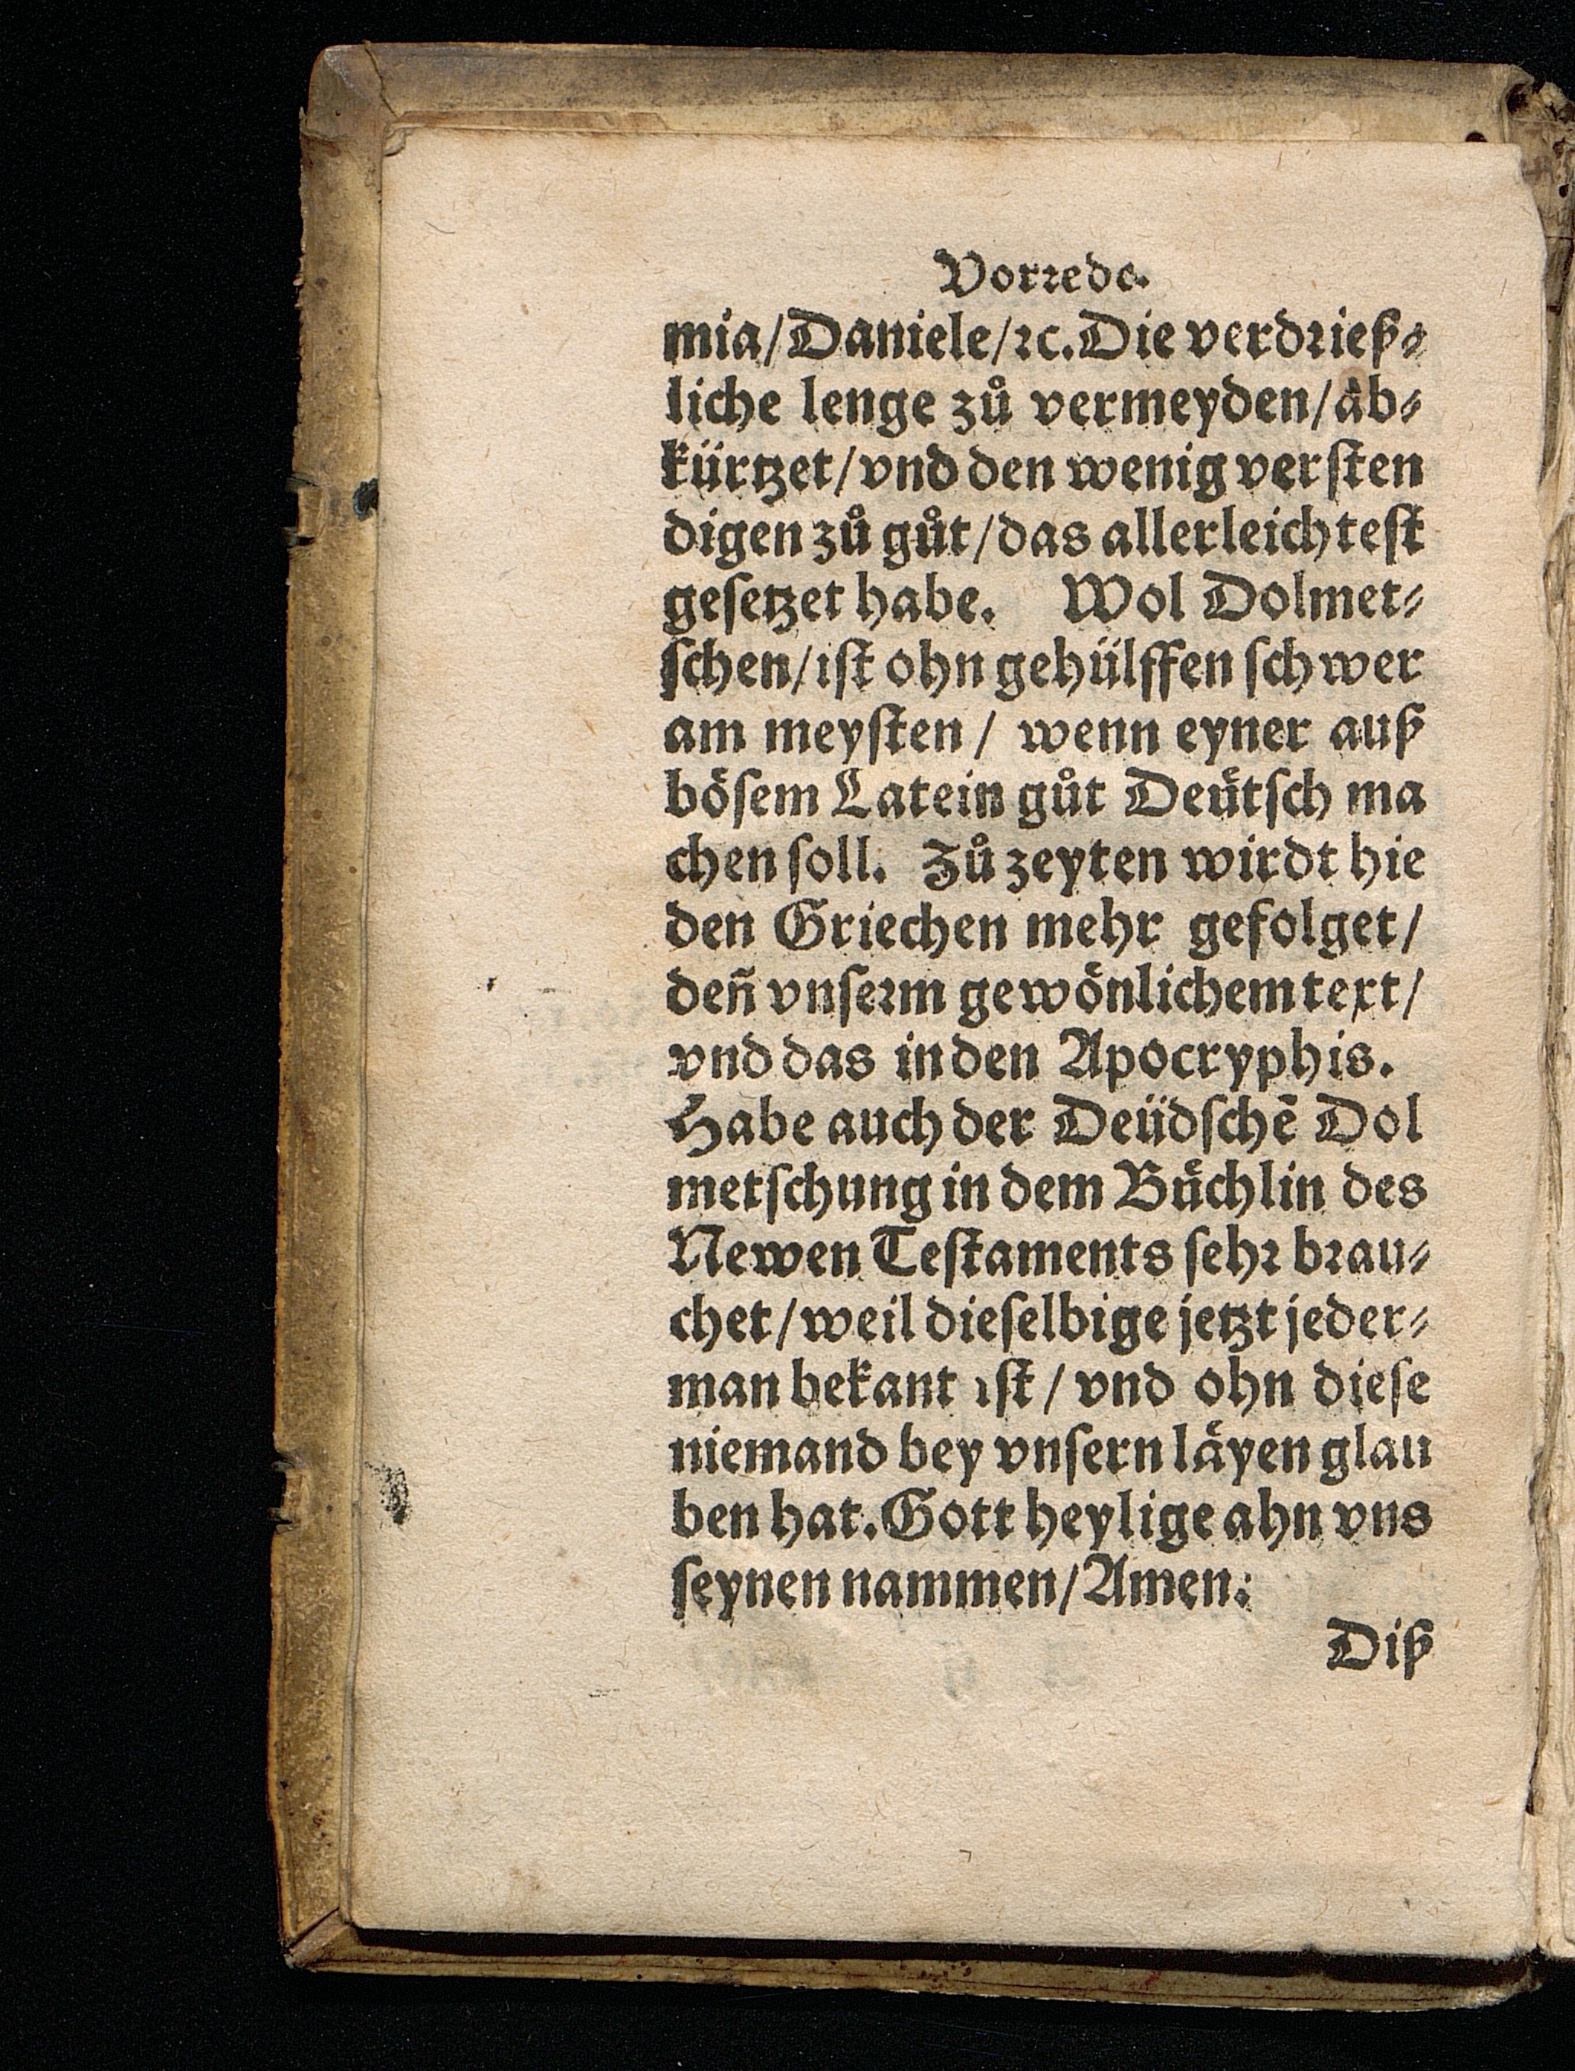 Vorꝛede.
mia/Daniele/ꝛc. Die verdꝛieß⸗
liche lenge zů vermeyden/ab⸗
kürtzet/vnd den wenig verſten
digen zů gůt/das allerleichteſt
geſetzet habe. Wol Dolmet⸗
ſchen/iſt ohn gehülffen ſchwer
am meyſten/ wenn eyner auß
böſem Latein gůt Deütſch ma
chen ſoll. Zů zeyten wirdt hie
den Griechen mehr gefolget/
deñ vnſeꝛm gewönlichem text/
vnd das in den Apocryphis.
Habe auch der Deüdſchẽ Dol
metſchung in dem Büchlin des
Newen Teſtaments ſehꝛ bꝛau⸗
chet/weil dieſelbige jetzt jeder⸗
man bekant iſt/ vnd ohn dieſe
niemand bey vnſern läyen glau
ben hat. Gott heylige ahn vns
ſeynen nammen/Amen.
Diß